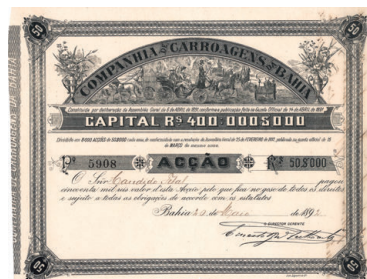 50 50
COMPANHIA DE CARROAGENS DA BAHIA
Constituida por deliberação da Assembléa Geral de 8 de ABRIL de 1891, conforme a publicação feita na Gazeta Official de 14 de ABRIL de 1891
CAPITAL RS 400:000$000
Dividido em 8000 ACÇÕES de 50,000
de FEVEREIRO de 1892, publicada na gazeta official de 18
de MARÇO do mesmo anno.
Nº 5908 ACÇÃO RS 50$000
O Snr pagou
cincoenta mil reis valor d'esta Acção pelo que fica no goso de todos os direitos
e sujeito a todas as obrigações de accordo com os estatutos
Bahia de Maio de 189
O DIRECTOR GERENTE
50 50